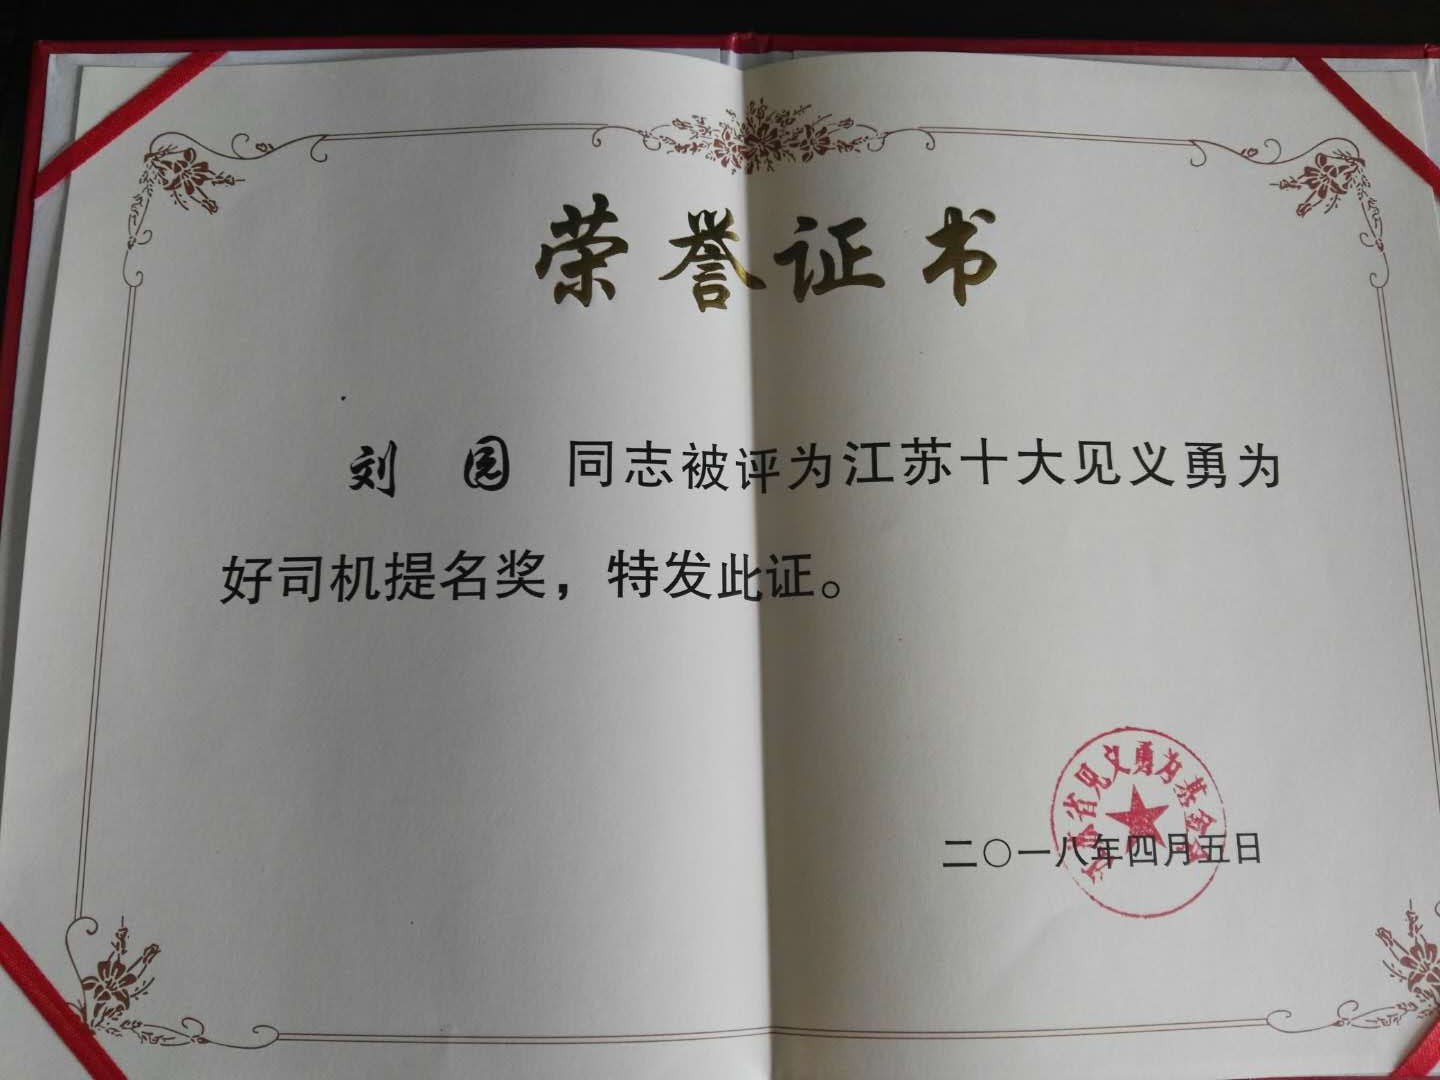 荣誉证书
刘 园 同志被评为江苏十大见义勇为
好司机提名奖，特发此证。
江苏省见义勇为基金会
二〇一八年四月五日